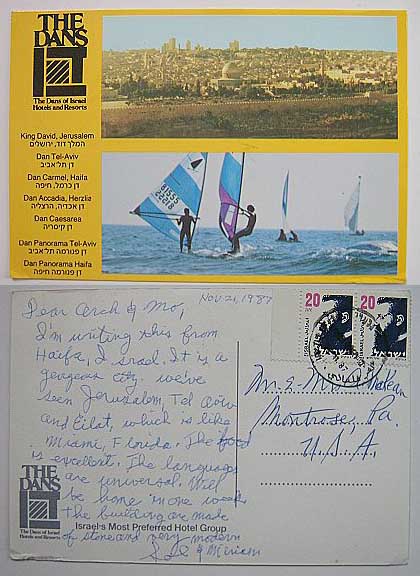 THE
DANS
The Dans of Israel
Hotels and Resorts
King David, Jerusalem
המלך דוד, ירושלים
Dan Tel-Aviv
דן תל-אביב
Dan Carmel, Haifa
דן כרמל, חיפה
Dan Accadia, Herzlia
דן אכדיה, הרצליה
Dan Caesarea
דן קיסריה
Dan Panorama Tel-Aviv
דן פנורמה תל-אביב
Dan Panorama Haifa
דן פנורמה חיפה
Nov 21, 1987
Dear Arch & Mo,
I'm writing this from
Haifa, Israel. It is a
gorgeous city. We've
seen Jerusalem, Tel Aviv
and Eilat, which is like
Miami, Florida. The food
is excellent. The languages
are universal. Will
be home in one week
the building are made
of stone and very modern
& Miriam
THE
DANS
The Dans of Israel
Hotels and Resorts
Israel's Most Preferred Hotel Group
20
20
Mr. & Mrs.
Montrose, Pa.
U.S.A.